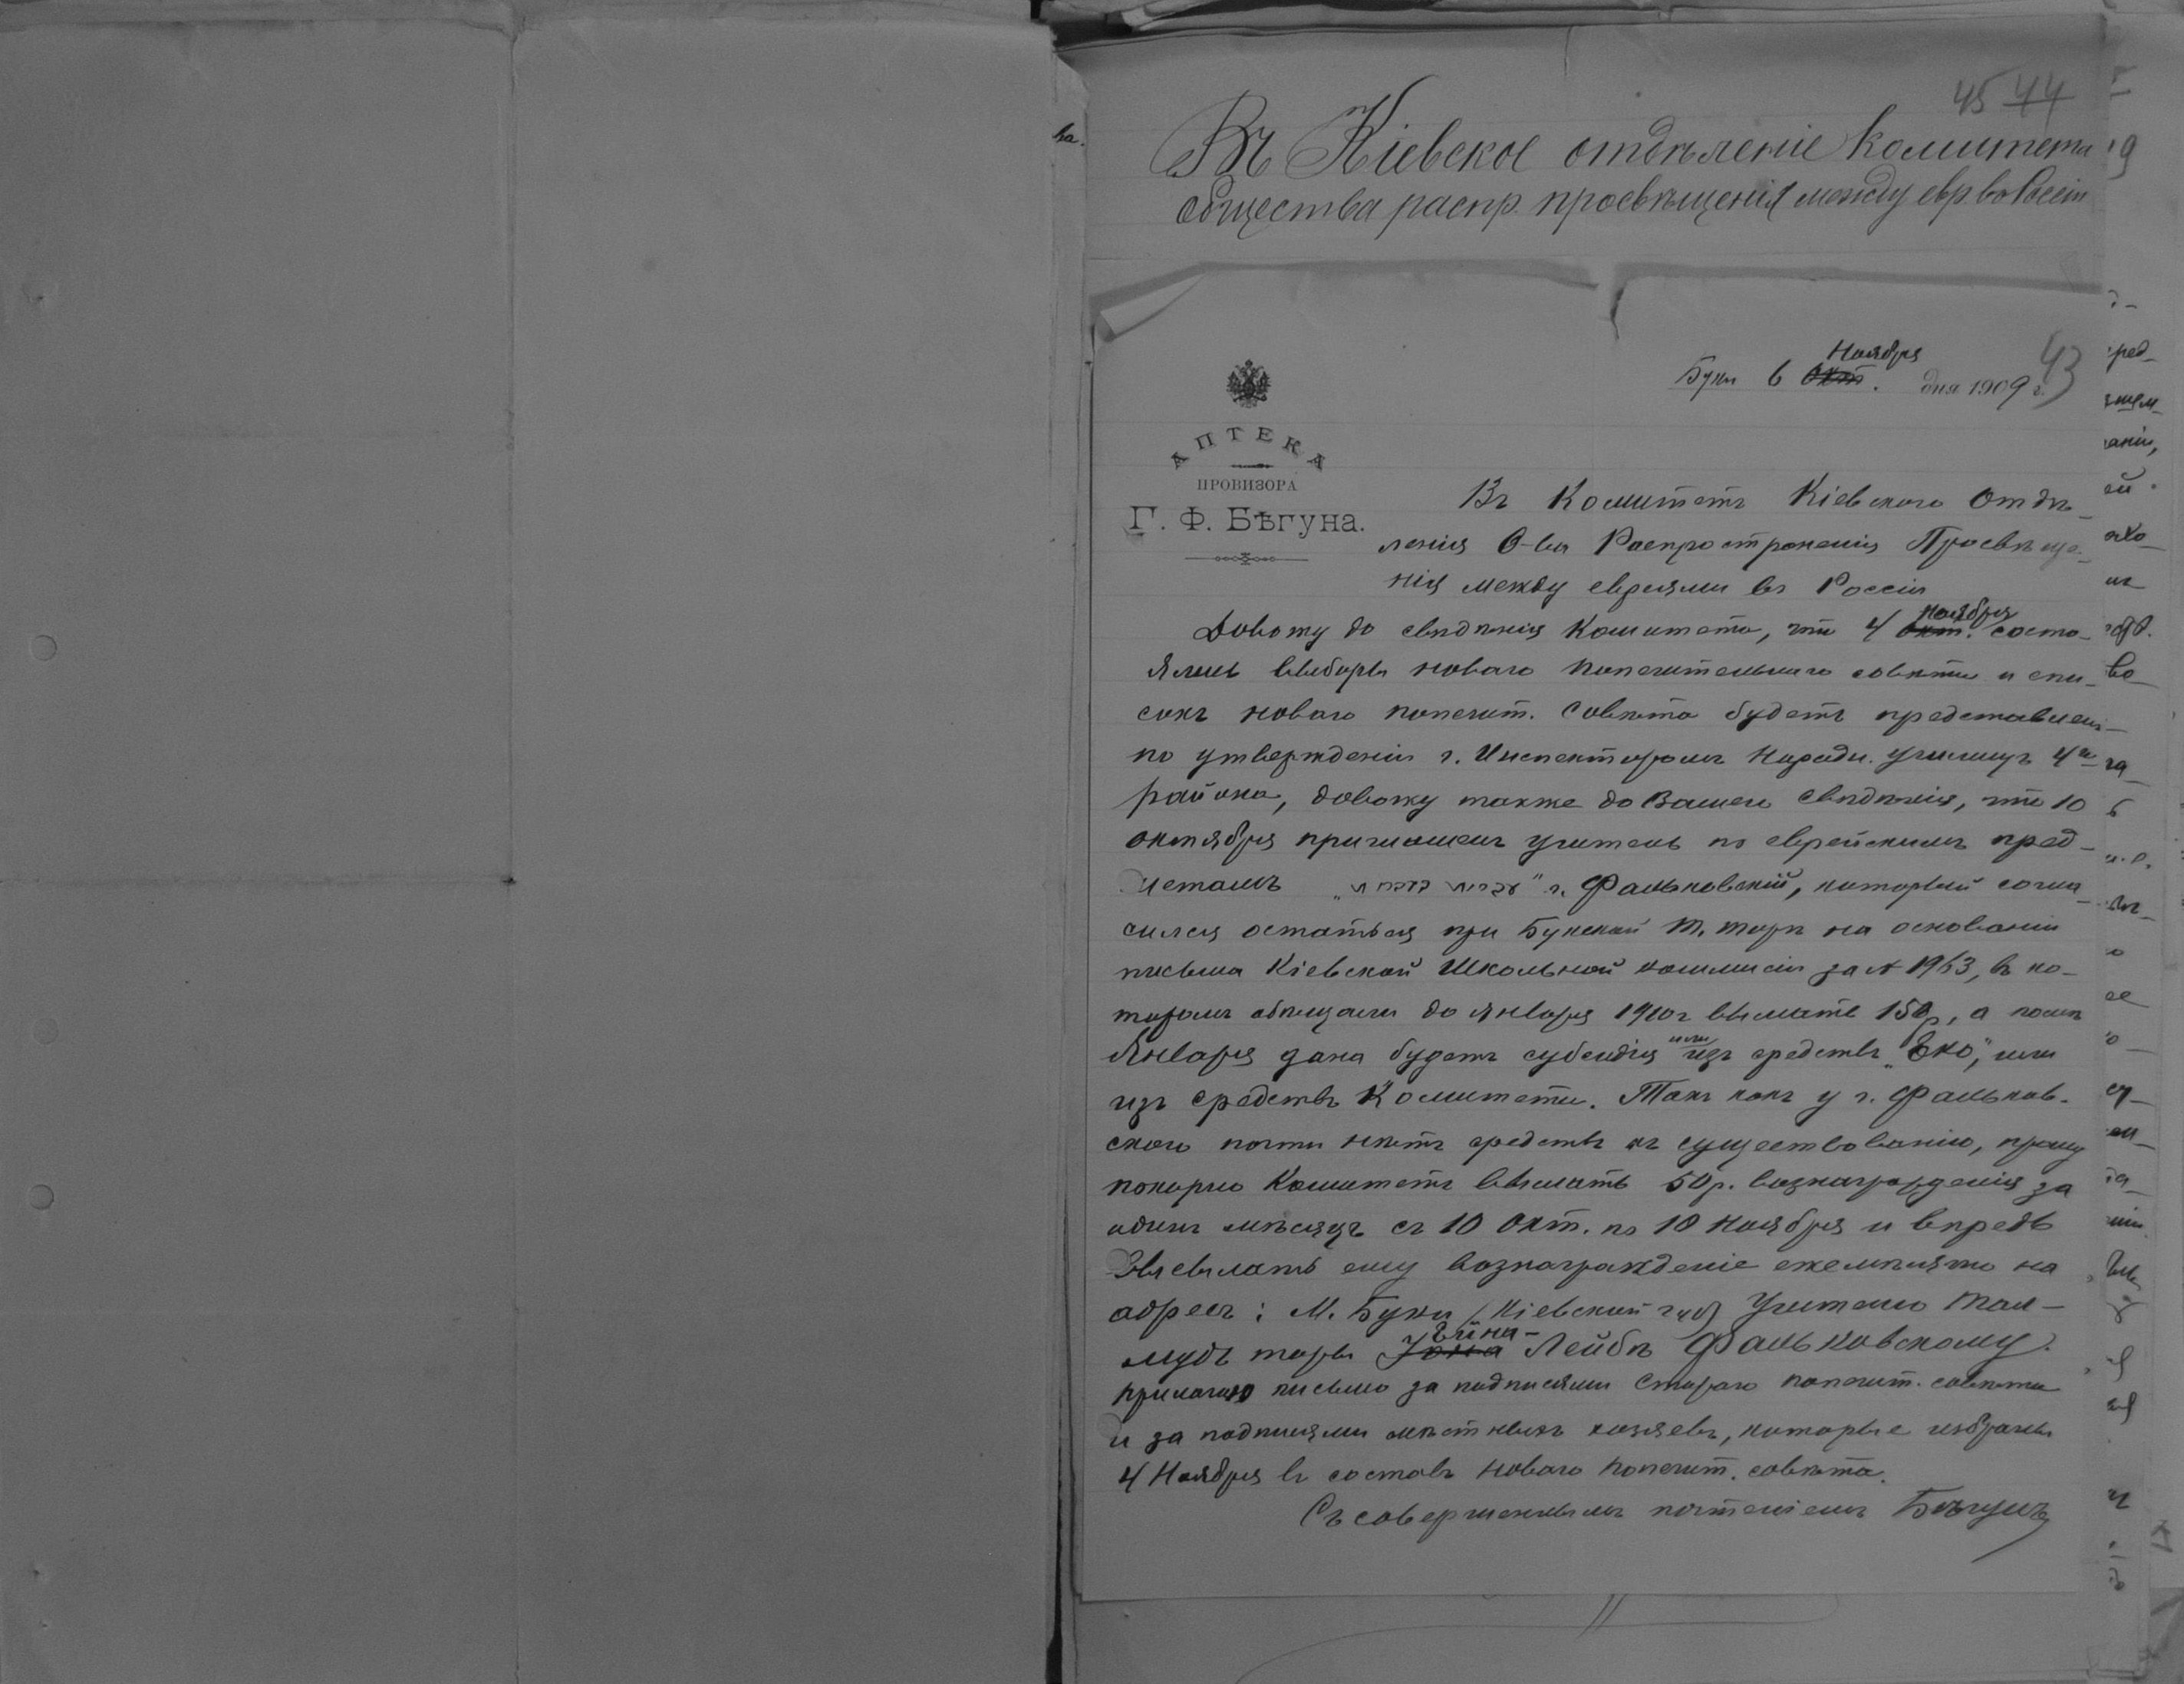 45 44
Въ Кіевское отдѣленіе Комитета
общества распр. просвѣщенія между евр. въ Россіи
43
Ноября
Буки 6 Окт. дня 1909 г.
АПТЕКА
ПРОВИЗОРА
Г. Ф. Бѣгуна.
Въ Комитетъ Кіевскаго Отдѣ-
ленія О-ва Распространенія Просвѣще-
нія между евреями въ Россіи
Довожу до свѣдѣнія Комитета, что 4 окт. ноября состо-
ялись выборы новаго попечительнаго совѣта и спи-
сокъ новаго попечит. совѣта будетъ представленъ
по утвержденіи г. Инспекторомъ Народн. училищъ 4го
района, довожу также до Вашего свѣдѣнія, что 10
октября приглашенъ учитель по еврейскимъ пред-
метамъ г. Фальковскій, который согла-
сился остаться при Букской Т. торѣ на основаніи
письма Кіевской Школьной коммисіи за № 1963, въ ко-
торомъ обѣщали до Января 1910 г высылать 150р, а послѣ
Января дана будетъ субсидія или изъ средствъ „Еко", или
изъ средствъ Комитета. Такъ какъ у г. Фальков-
скаго почти нѣтъ средствъ къ существованію, прошу
покорно Комитетъ выслать 50 р. вознагражденія за
одинъ мѣсяцъ съ 10 Окт. по 10 Ноября и впредь
высылать ему вознагражденіе ежемѣсячно на
адресъ: М. Буки (Кіевской губ) Учителю Тал-
мудъ торы Лейбѣ Фальковскому.
Прилагаю письмо за подписями стараго попечит. совѣта
и за подписями мѣстныхъ хозяевъ, которые избраны
4 Ноября въ составъ новаго попечит. совѣта.
Съ совершеннымъ почтеніемъ Бѣгунъ